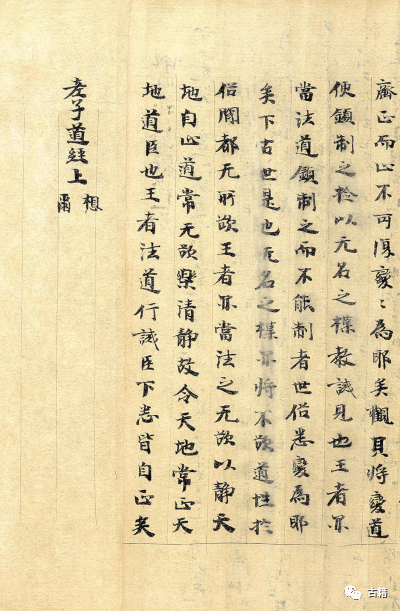 齋正而止不可復變〻為耶矣觀其將變道
便鎮制之檢以无名之樸教誡見也王者亦
當法道鎮制之而不能制者世俗悉變為耶
矣下古世是也无名之樸亦將不欲道性於
俗間都无所欲王者亦當法之无欲以靜天
地自止道常无欲樂清静故令天地常正天
地道臣也王者法道行誡臣下悉皆自正矣
老子道經上
想爾
古籍